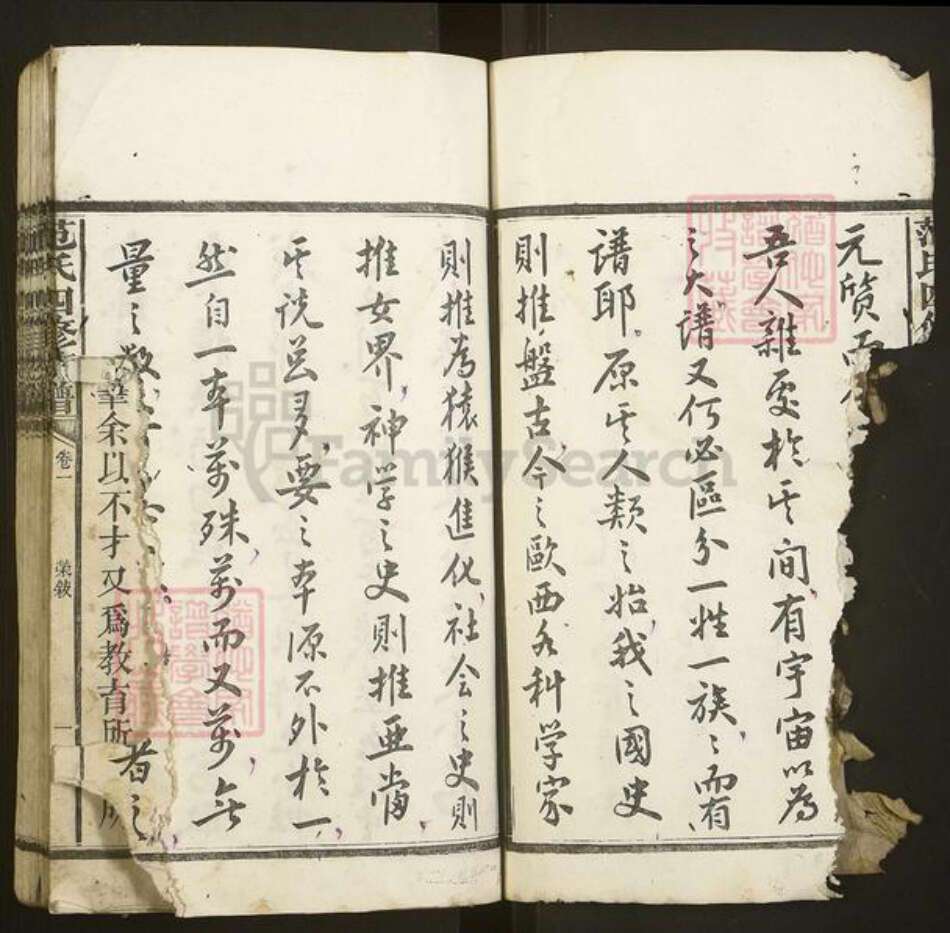 元質而
吾人雜處於其间有宇宙以為
之大譜又何必區分一姓一族之而有
谱耶原其人類之始我之國史
則推盤古今之歐西各科学家
則推為猿猴進化社会之史則
推女界神学之史則推亞當
其说甚多要之本源不外於一
然自一本萬殊萬而又萬無
量之数
者之
華余以不才又爲教育所
范氏四修族譜
卷一
榮敘
一
范氏四修
FamilySearch